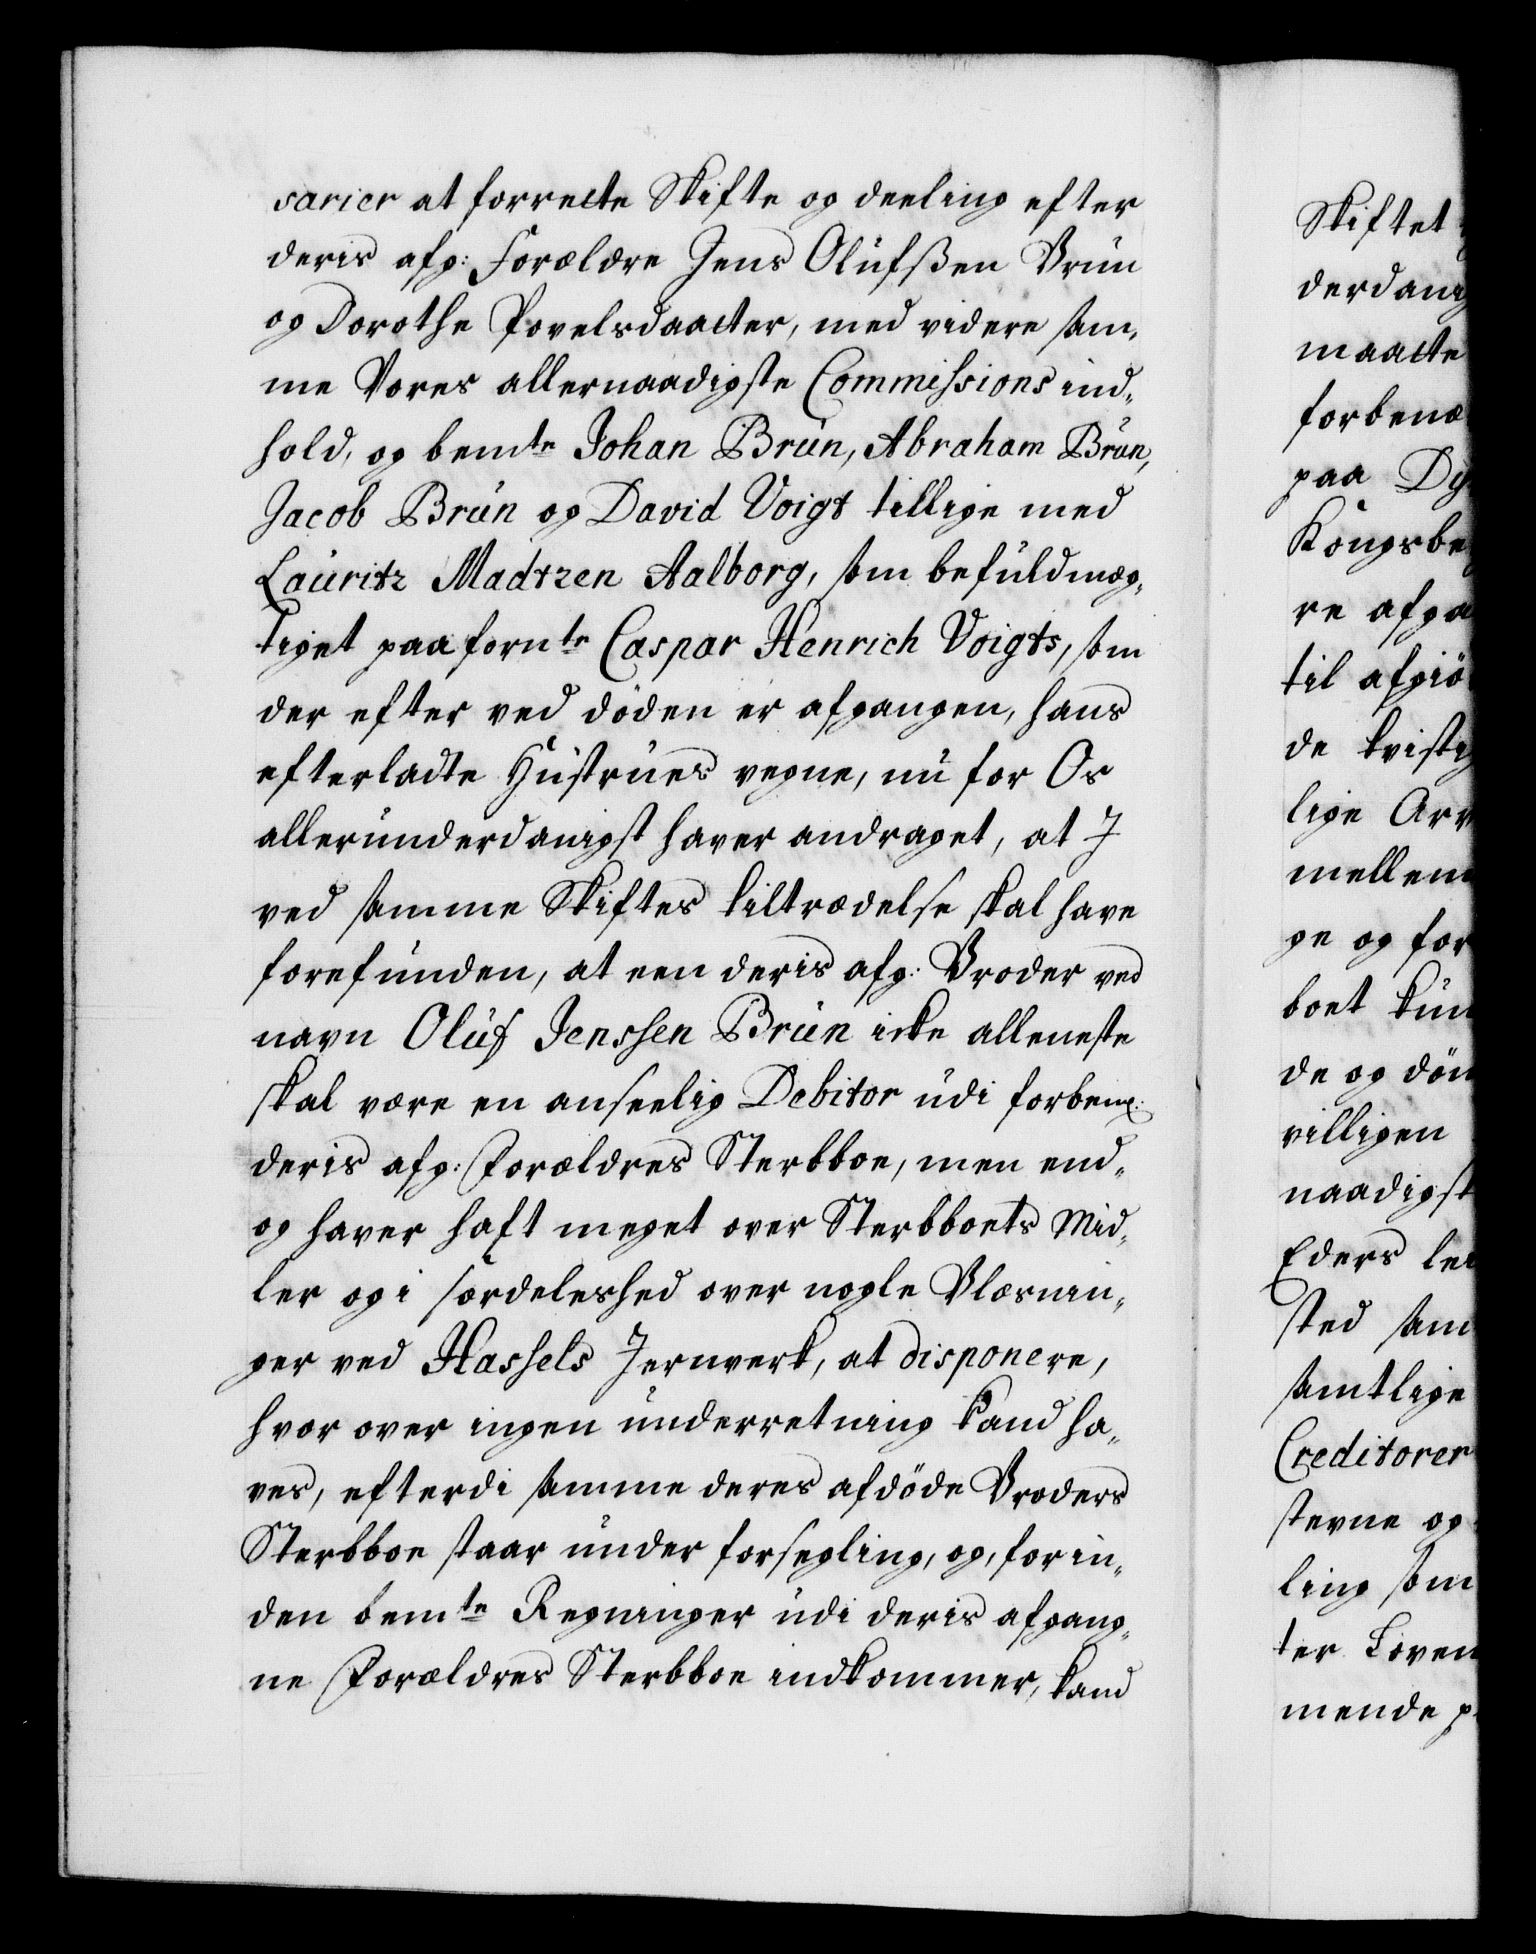 sarier at forrette Skifte og deeling efter
deris afg: Forældre Jens Olufßen Brun
og Dorothe Povelsdaatter, med videre sam„
me Vores allernaadigste Commissions ind„
hold, og bemte Johan Brun, Abraham Brun,
Jacob Brun og David Voigt tillige med
Lauritz Madtzen Aalborg, som befuldmæg„
tiget paa fornte Caspar Henrich Voigts, som
der efter ved døden er afgangen, hans
efterladte Hustrues vegne, nu for Os
allerunderdanigst haver andraget, at I
ved samme Skiftes tiltrædelse skal have
forefunden, at een deris afg: Broder ved
navn Oluf Jenssen Brun icke alleneste
skal være en anseelig Debitor udi forbem:
deris afg: Forældres Sterbboe, men end„
og haver haft meget over Sterbboets Mid„
ler og i særdeleshed over nogle Blæsnin„
ger ved Hassels Jernverk, at disponere,
hvor over ingen underretning kand ha„
ves, efterdi samme deres afdøde Broders
Sterbboe staar under forsegling, og, for in„
den bemte Regninger udi deris afgang„
ne Forældres Sterbboe indkommer, kand
Skiftet
derdanig
maatte
forbenæ
paa Dy
Kongsbe
re afga
til afgiø
de tvisti
lige Arv
mellem
ge og for
boet kun
de og døm
villigen
naadigst
Eders le
sted sam
samtlige
Creditorer
stevne og
ling som
ter Loven
mende p